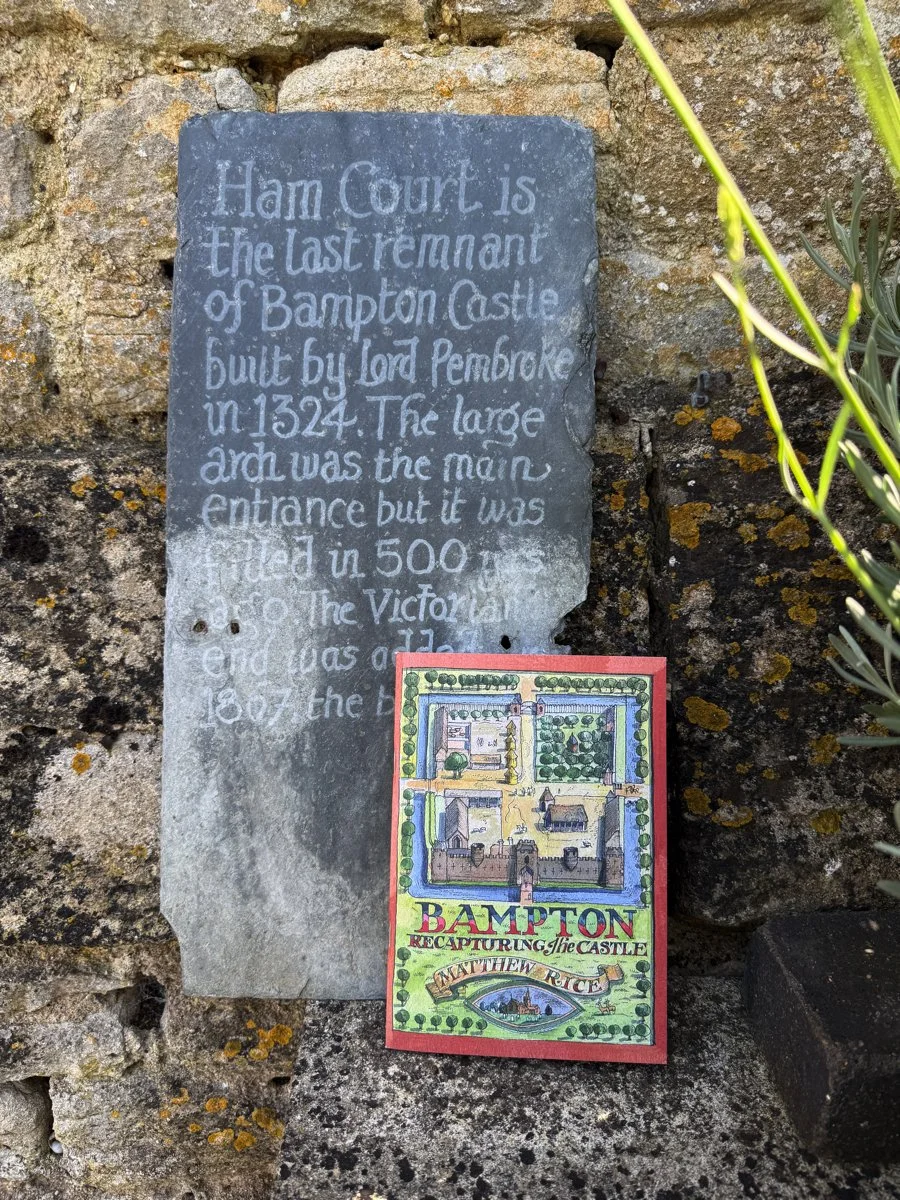 Ham Court is
the last remnant
of Bampton Castle
built by Lord Pembroke
in 1324. The large
arch was the main
entrance but it was
filled in 500 yrs
ago The Victorian
end was added
the
BAMPTON
RECAPTURING the CASTLE
MATTHEW RICE